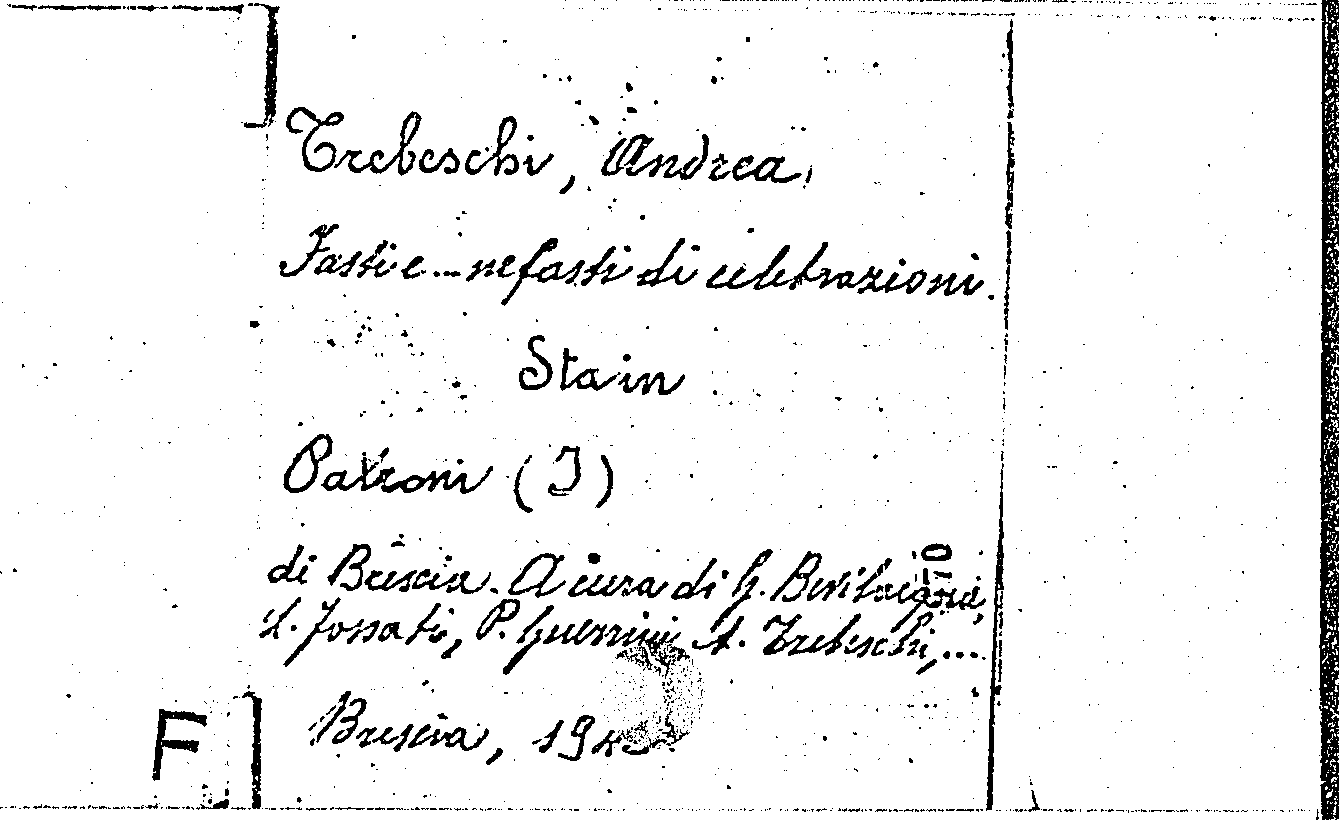 Trebeschi, Andrea,
Fasti e... nefasti di celebrazioni.
Sta in
Patroni (I)
di Brescia. A cura di G. Bevilacqua,
L. Fossati, P. Guerrini, A. Trebeschi,...
Brescia, 19
F